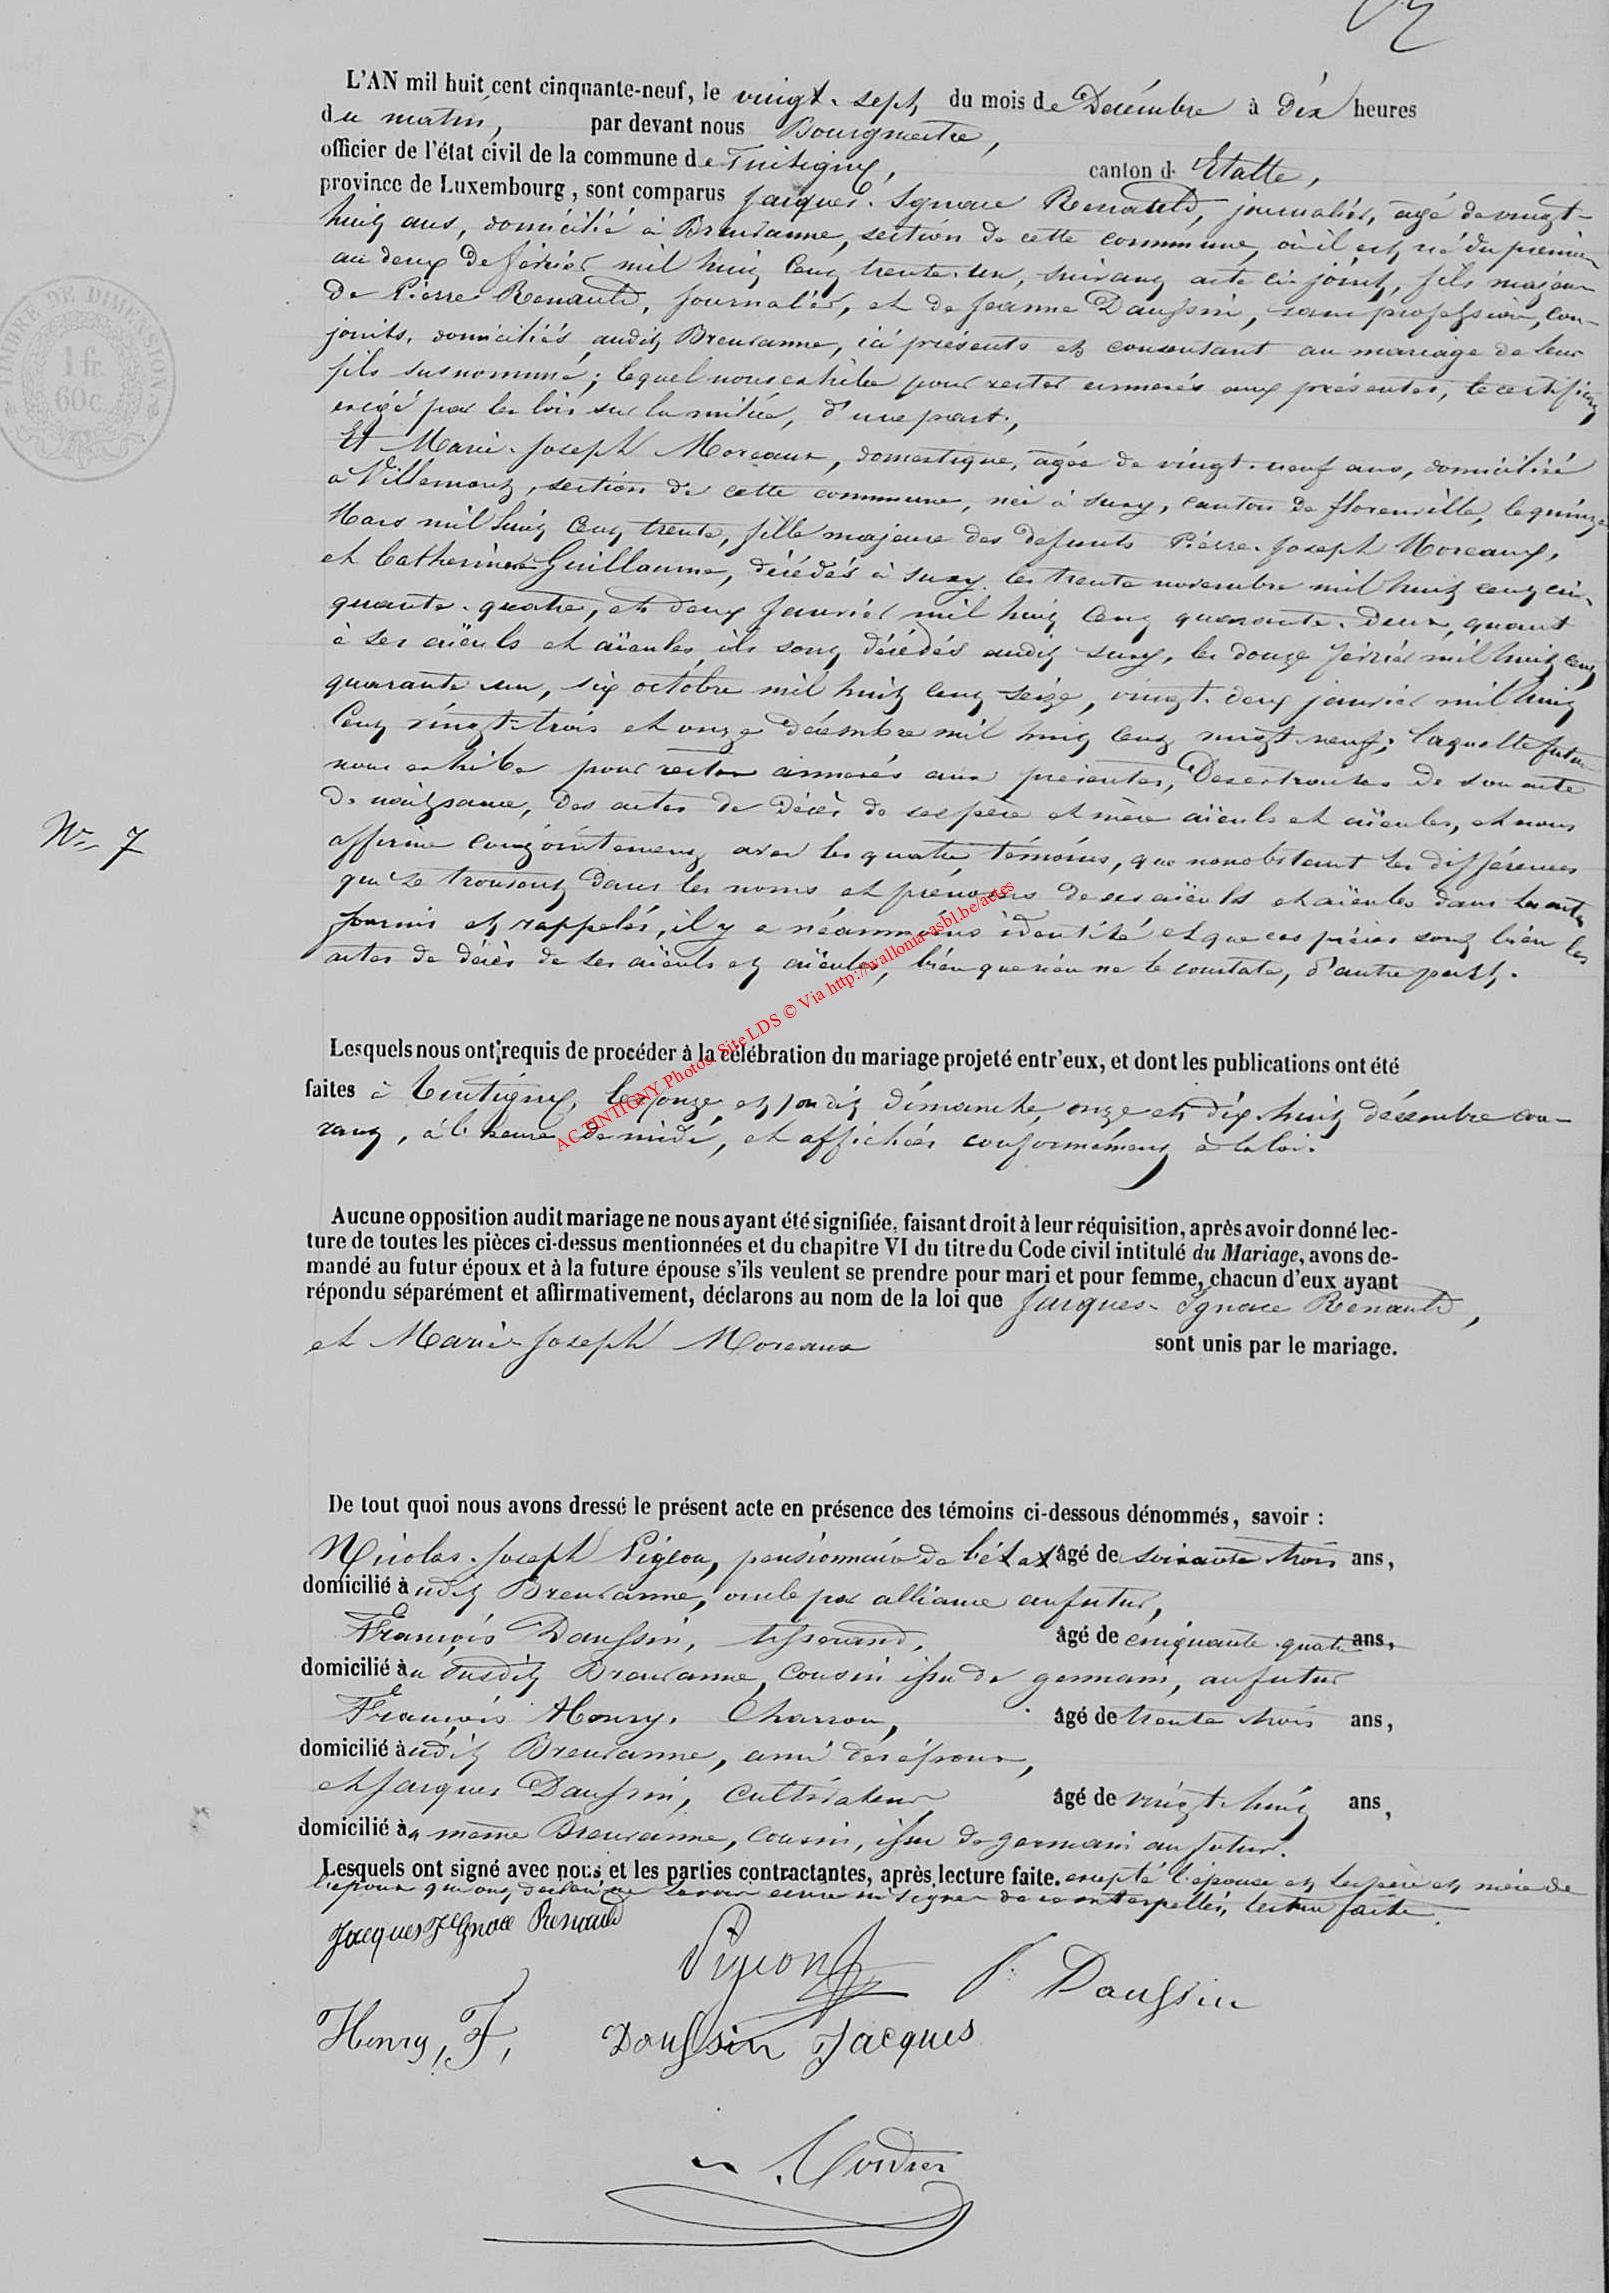 L'AN mil huit cent cinquante-neuf, le vingt-sept du mois de Décembre à dix heures
du matin, par devant nous Bourgmestre,
officier de l'état civil de la commune de Tintigny, canton d' Etalle,
province de Luxembourg, sont comparus Jacques-Ignace Renauld, journalier, âgé de vingt-
huit ans, domicilié à Breuvanne, section de cette commune, où il est né du premier
au deux de février mil huit cent trente-un, suivant acte ci-joint, fils majeur
de Pierre Renauld, journalier, et de Jeanne Daussin, sans profession, con-
joints, domiciliés audit Breuvanne, ici présents et consentant au mariage de leur
fils susnommé; lequel nous exhibe pour rester annexés aux présentes, le certificat
exigé par les lois sur la milice, d'une part,
Et Marie-Joseph Moreaux, domestique, âgée de vingt-neuf ans, domiciliée
à Villemont, section de cette commune, née à Suxy, canton de florenville, le quinze
Mars mil huit cent trente, fille majeure des défunts Pierre-Joseph Moreaux,
et Catherine Guillaume, décédés à Suxy les trente novembre mil huit cent cin-
quante-quatre, et deux Janvier mil huit cent quarante-deux, quant
à ses aïeuls et aïeules, ils sont décédés audit Suxy, les douze février mil huit cent
quarante un, six octobre mil huit cent seize, vingt-deux janvier mil huit
cent vingt-trois et onze décembre mil huit cent vingt-neuf; laquelle future
nous exhibe pour rester annexés aux présentes, Des extraits de son acte
de naissance, des actes de décès de ses père et mère aïeuls et aïeules, et nous
affirme conjointement avec les quatre témoins, que nonobstant les différences
qui se trouvent dans les noms et prénoms de ses aïeuls et aïeules dans les actes
fournis et rappelés, il y a néanmoins identité et que ces pièces sont bien les
actes de décès de ses aïeuls et aïeules, bien que rien ne le constate, d'autre part,
N° 7
Lesquels nous ont requis de procéder à la célébration du mariage projeté entr'eux, et dont les publications ont été
faites à Tintigny, les onze et dimanche onze et dix-huit décembre cou-
rant, à l'heure de midi, et affichées conformément à la loi.
Aucune opposition audit mariage ne nous ayant été signifiée, faisant droit à leur réquisition, après avoir donné lec-
ture de toutes les pièces ci-dessus mentionnées et du chapitre VI du titre du Code civil intitulé du Mariage, avons de-
mandé au futur époux et à la future épouse s'ils veulent se prendre pour mari et pour femme, chacun d'eux ayant
répondu séparément et affirmativement, déclarons au nom de la loi que Jacques-Ignace Renauld,
et Marie-Joseph Moreaux sont unis par le mariage.
De tout quoi nous avons dressé le présent acte en présence des témoins ci-dessous dénommés, savoir :
Nicolas-Joseph Pigeon, pensionnaire de l'état âgé de soixante trois ans,
domicilié audit Breuvanne, oncle par alliance au futur,
François Daussin, tisserand, âgé de cinquante-quatre ans,
domicilié au susdit Breuvanne, cousin issu de germain, au futur
François Henry, Charron, âgé de trente trois ans,
domicilié audit Breuvanne, ami des époux,
et Jacques Daussin, cultivateur âgé de vingt-huit ans,
domicilié au même Breuvanne, cousin, issu de germain au futur.
Lesquels ont signé avec nous et les parties contractantes, après lecture faite. excepté l'épouse et les père et mère de
l'époux qui ont déclaré ne savoir écrire ni signer de ce interpellés, lecture faite.
Jacques Ignace Renauld
Pigeon F. Daussin
Henry, F, Daussin Jacques
TIMBRE DE DIMENSION
1 fr.
60 c.
AC TINTIGNY Photos Site LDS © Via http://wallonia-asbl.be/actes